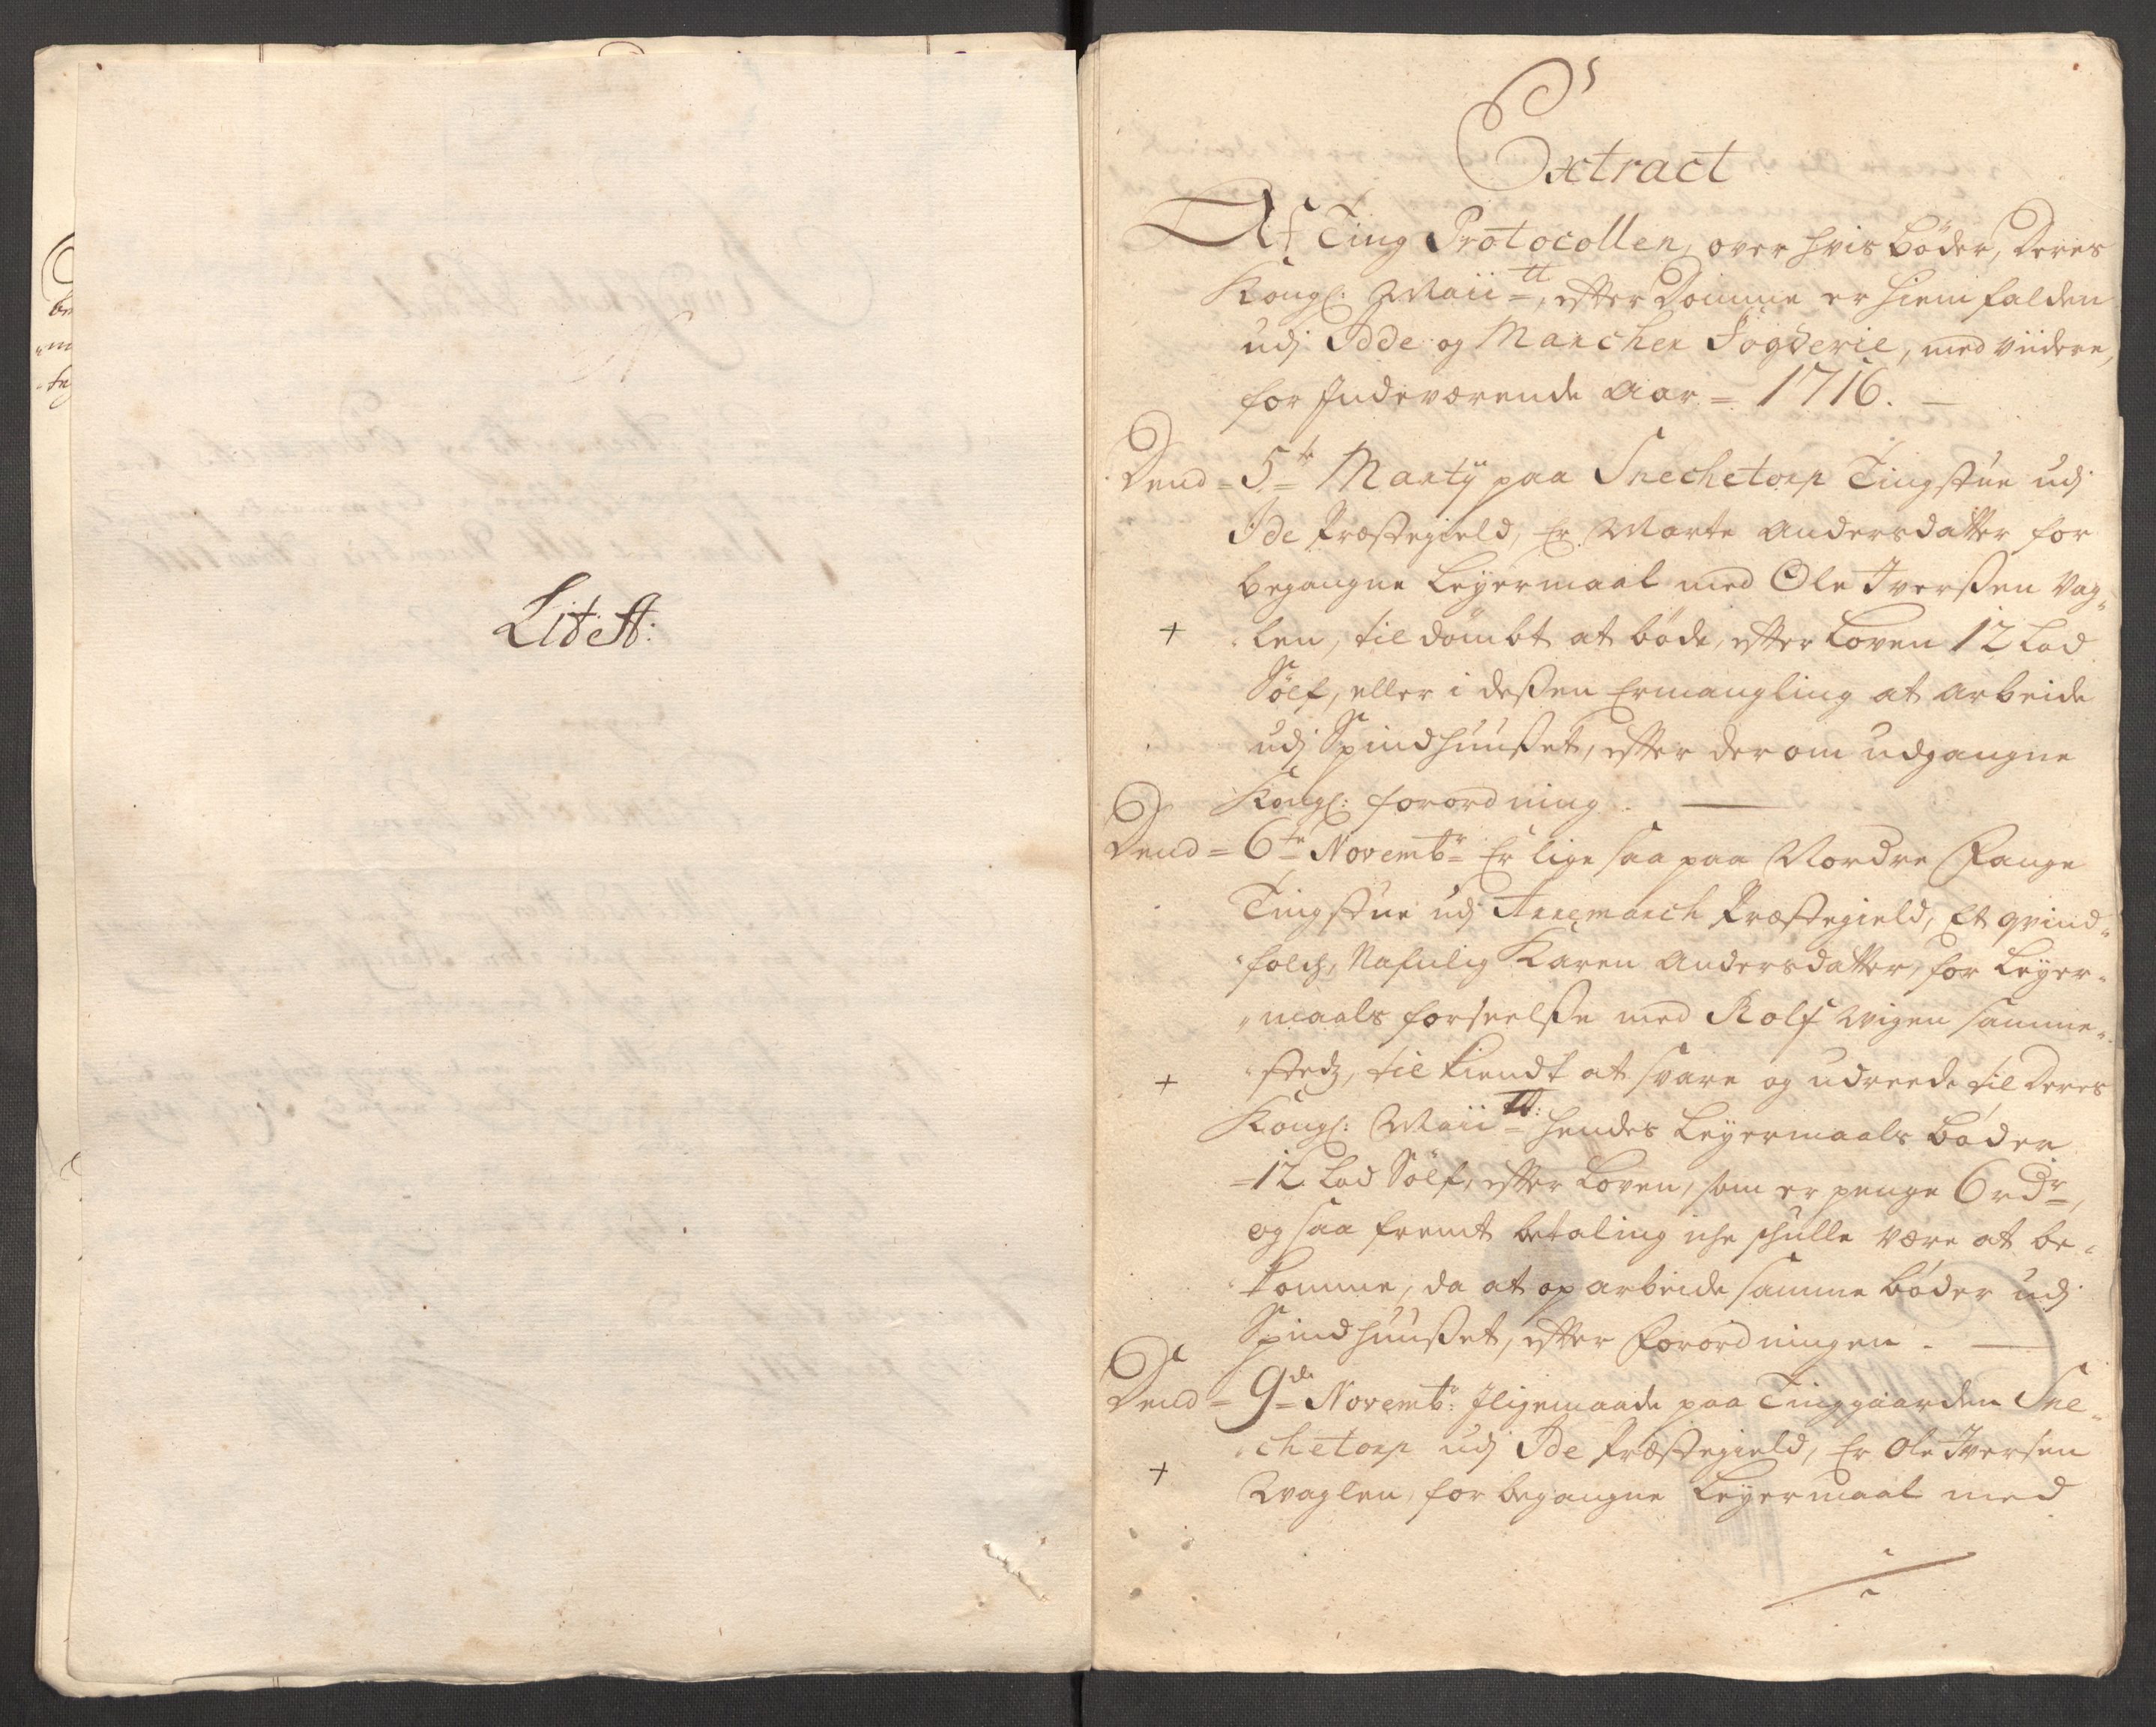 Lit: A:
Extract
Af Ting Protocollen, over hvis bøder, Deres
Kongl: Maii tt, efter Domme er hiemfalden
udj Idde og Marcher Fogderie, med viidere,
for Indeværende Aar = 1716.
Dend = 5te Marty paa Snechetorp Tingstue udj
Ide Præstegield, Er Marte Andersdatter for
begangne Leyermaal med Ole Iverßen Vag„
„len, til dømbt at bøde, efter Loven 12 Lod
Sølf, eller i deßen Ermangling at arbeide
udj Spindhuußet, efter derom udgangne
Kongl: forordning.
Dend = 6te Novembr Er lige saa paa Nordre Fange
Tingstue udj Arremarch Præstegield, Et qvind„
„folch, Nafnlig Karen Andersdatter, for Leyer„
„maals forseelße med Rolf Wigen samme„
„stedz, til kiendt at svare og udreede til Deres
Kongl: Maii tt: hendes Leyermaals bøder
12 Lod Sølf, efter Loven, som er penge 6 rdr,
og saa fremt betaling iche schulle være at be„
„komme, da at op arbeide samme bøder udj
Spindhuußet, efter Forordningen.
Dend = 9de Novembr: Iligemaade paa Tinggaarden Sne„
„chetorp udj Ide Præstegield, Er Ole Iversen
Waglen, for begangne Leyermaal med